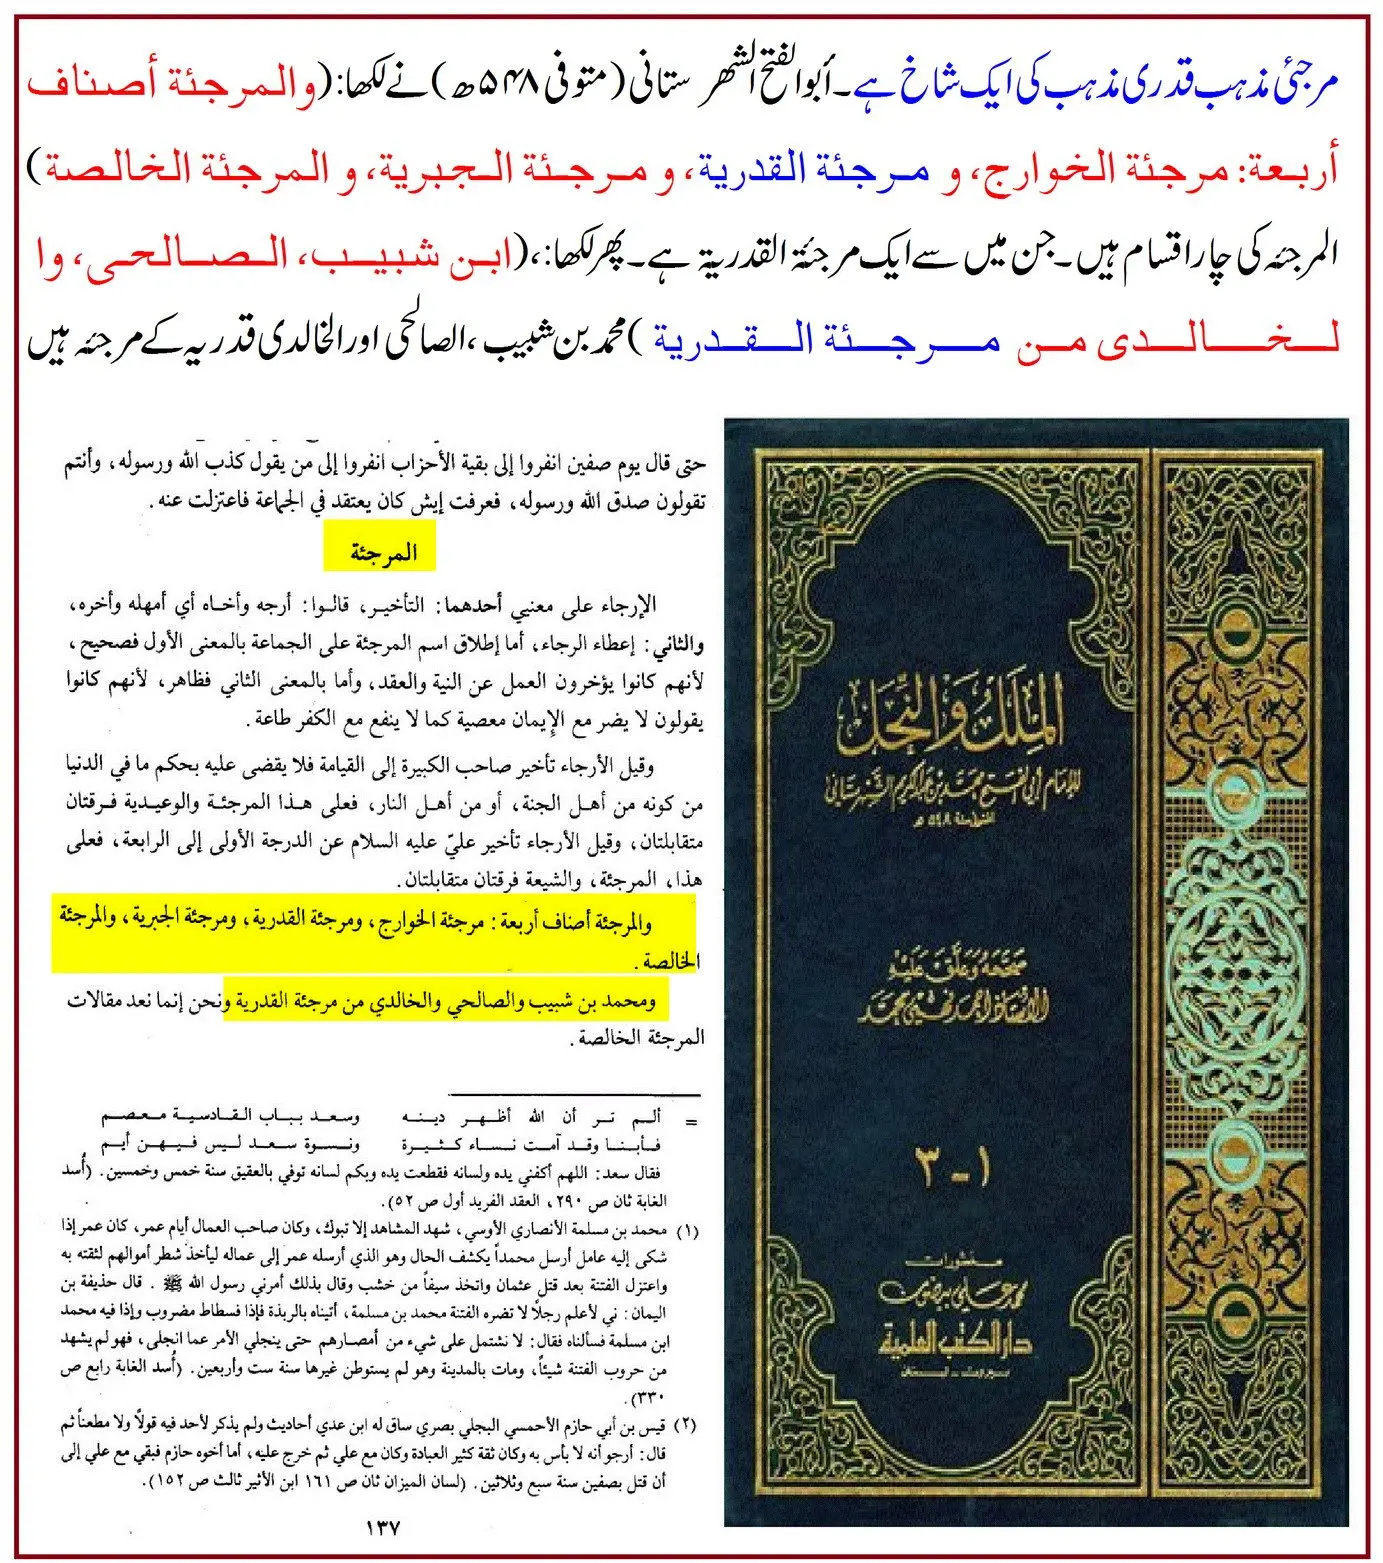 مرجئی مذہب قدری مذہب کی ایک شاخ ہے۔ أبو الفتح الشهر ستانی (متوفی ۵۴۸ھ) نے لکھا: (والمرجئة أصناف
أربعة: مرجئة الخوارج، و مرجئة القدرية، و مرجئة الجبرية، و المرجئة الخالصة)
المرجئہ کی چار اقسام ہیں۔ جن میں سے ایک مرجئۃ القدریۃ ہے۔ پھر لکھا:، (ابن شبيب، الصالحى، وا
لخالدى من مرجئة القدرية) محمد بن شبیب، الصالحی اور الخالدی قدریہ کے مرجئہ ہیں
حتى قال يوم صفين انفروا إلى بقية الأحزاب انفروا إلى من يقول كذب الله ورسوله، وأنتم
تقولون صدق الله ورسوله، فعرفت إيش كان يعتقد في الجماعة فاعتزلت عنه.
المرجئة
الإرجاء على معنيي أحدهما: التأخير، قالوا: أرجه وأخاه أي أمهله وأخره،
والثاني: إعطاء الرجاء، أما إطلاق اسم المرجئة على الجماعة بالمعنى الأول فصحيح،
لأنهم كانوا يؤخرون العمل عن النية والعقد، وأما بالمعنى الثاني فظاهر، لأنهم كانوا
يقولون لا يضر مع الإيمان معصية كما لا ينفع مع الكفر طاعة.
وقيل الأرجاء تأخير صاحب الكبيرة إلى القيامة فلا يقضى عليه بحكم ما في الدنيا
من كونه من أهل الجنة، أو من أهل النار، فعلى هذا المرجئة والوعيدية فرقتان
متقابلتان، وقيل الأرجاء تأخير عليّ عليه السلام عن الدرجة الأولى إلى الرابعة، فعلى
هذا، المرجئة، والشيعة فرقتان متقابلتان.
والمرجئة أصناف أربعة: مرجئة الخوارج، ومرجئة القدرية، ومرجئة الجبرية، والمرجئة
الخالصة.
ومحمد بن شبيب والصالحي والخالدي من مرجئة القدرية ونحن إنما نعد مقالات
المرجئة الخالصة.
= ألم تر أن الله أظهر دينه وسعد بباب القادسية معصم
فأبنا وقد آمت نساء كثيرة ونسوة سعد ليس فيهن أيم
فقال سعد: اللهم أكفني يده ولسانه فقطعت يده وبكم لسانه توفي بالعقيق سنة خمس وخمسين. (أُسد
الغابة ثان ص ٢٩٠، العقد الفريد أول ص ٥٢).
(١) محمد بن مسلمة الأنصاري الأوسي، شهد المشاهد إلا تبوك، وكان صاحب العمال أيام عمر، كان عمر إذا
شكى إليه عامل أرسل محمداً يكشف الحال وهو الذي أرسله عمر إلى عماله ليأخذ شطر أموالهم لثقته به
واعتزل الفتنة بعد قتل عثمان واتخذ سيفاً من خشب وقال بذلك أمرني رسول الله ﷺ. قال حذيفة بن
اليمان: ني لأعلم رجلًا لا تضره الفتنة محمد بن مسلمة، أتيناه بالربذة فإذا فسطاط مضروب وإذا فيه محمد
ابن مسلمة فسألناه فقال: لا نشتمل على شيء من أمصارهم حتى ينجلي الأمر عما انجلى، فهو لم يشهد
من حروب الفتنة شيئاً، ومات بالمدينة وهو لم يستوطن غيرها سنة ست وأربعين. (أُسد الغابة رابع ص
٣٣٠).
(٢) قيس بن أبي حازم الأحمسي البجلي بصري ساق له ابن عدي أحاديث ولم يذكر لأحد فيه قولًا ولا مطعناً ثم
قال: أرجو أنه لا بأس به وكان ثقة كثير العبادة وكان مع علي ثم خرج عليه، أما أخوه حازم فبقي مع علي إلى
أن قتل بصفين سنة سبع وثلاثين. (لسان الميزان ثان ص ١٦١ ابن الأثير ثالث ص ١٥٢).
١٣٧
الملل والنحل
للإمام أبي الفتح محمد بن عبد الكريم الشهرستاني
المتوفى سنة ٥٤٨ هـ
صححه وعلق عليه
الأستاذ أحمد فهمي محمد
١ - ٣
منشورات
محمد علي بيضون
دار الكتب العلمية
بيروت - لبنان